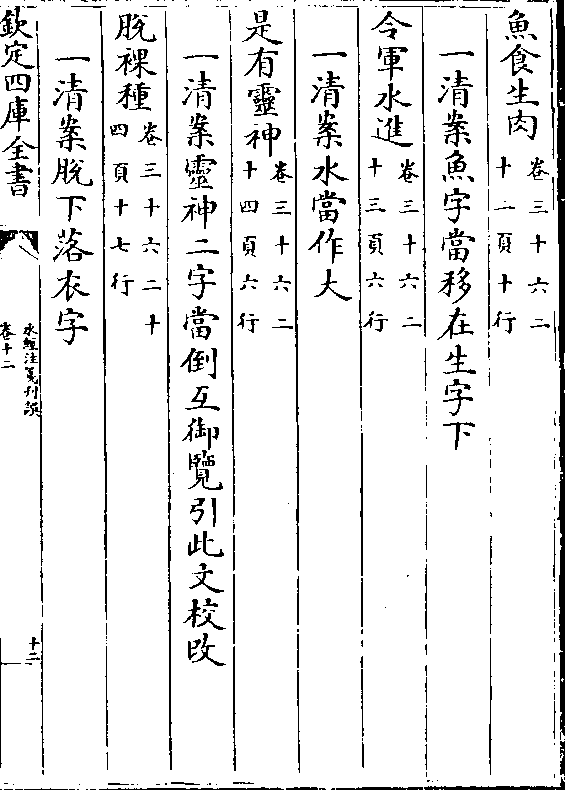 魚食生肉 卷三十六二十一頁十行
一清案魚字當移在生字下
令軍水進 卷三十六二十三頁六行
一清案水當作大
是有靈神 卷三十六二十四頁六行
一清案靈神二字當倒互御覽引此文校改
脫裸種 卷三十六二十四頁十七行
一清案脫下落衣字
欽定四庫全書
水經注箋刊誤
卷十二
十二